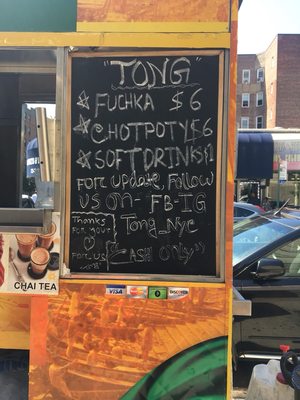 "TONG"
☆ FUCHKA $6
☆ CHOTPOTY $6
☆ SOFT DRINKS $1
FOR UPDATE, FOLLOW
US ON - FB-IG
Tong_Nyc
Thanks
FOR YOUR
FOR US
"CASH ONLY"
CHAI TEA
VISA
DISCOVER